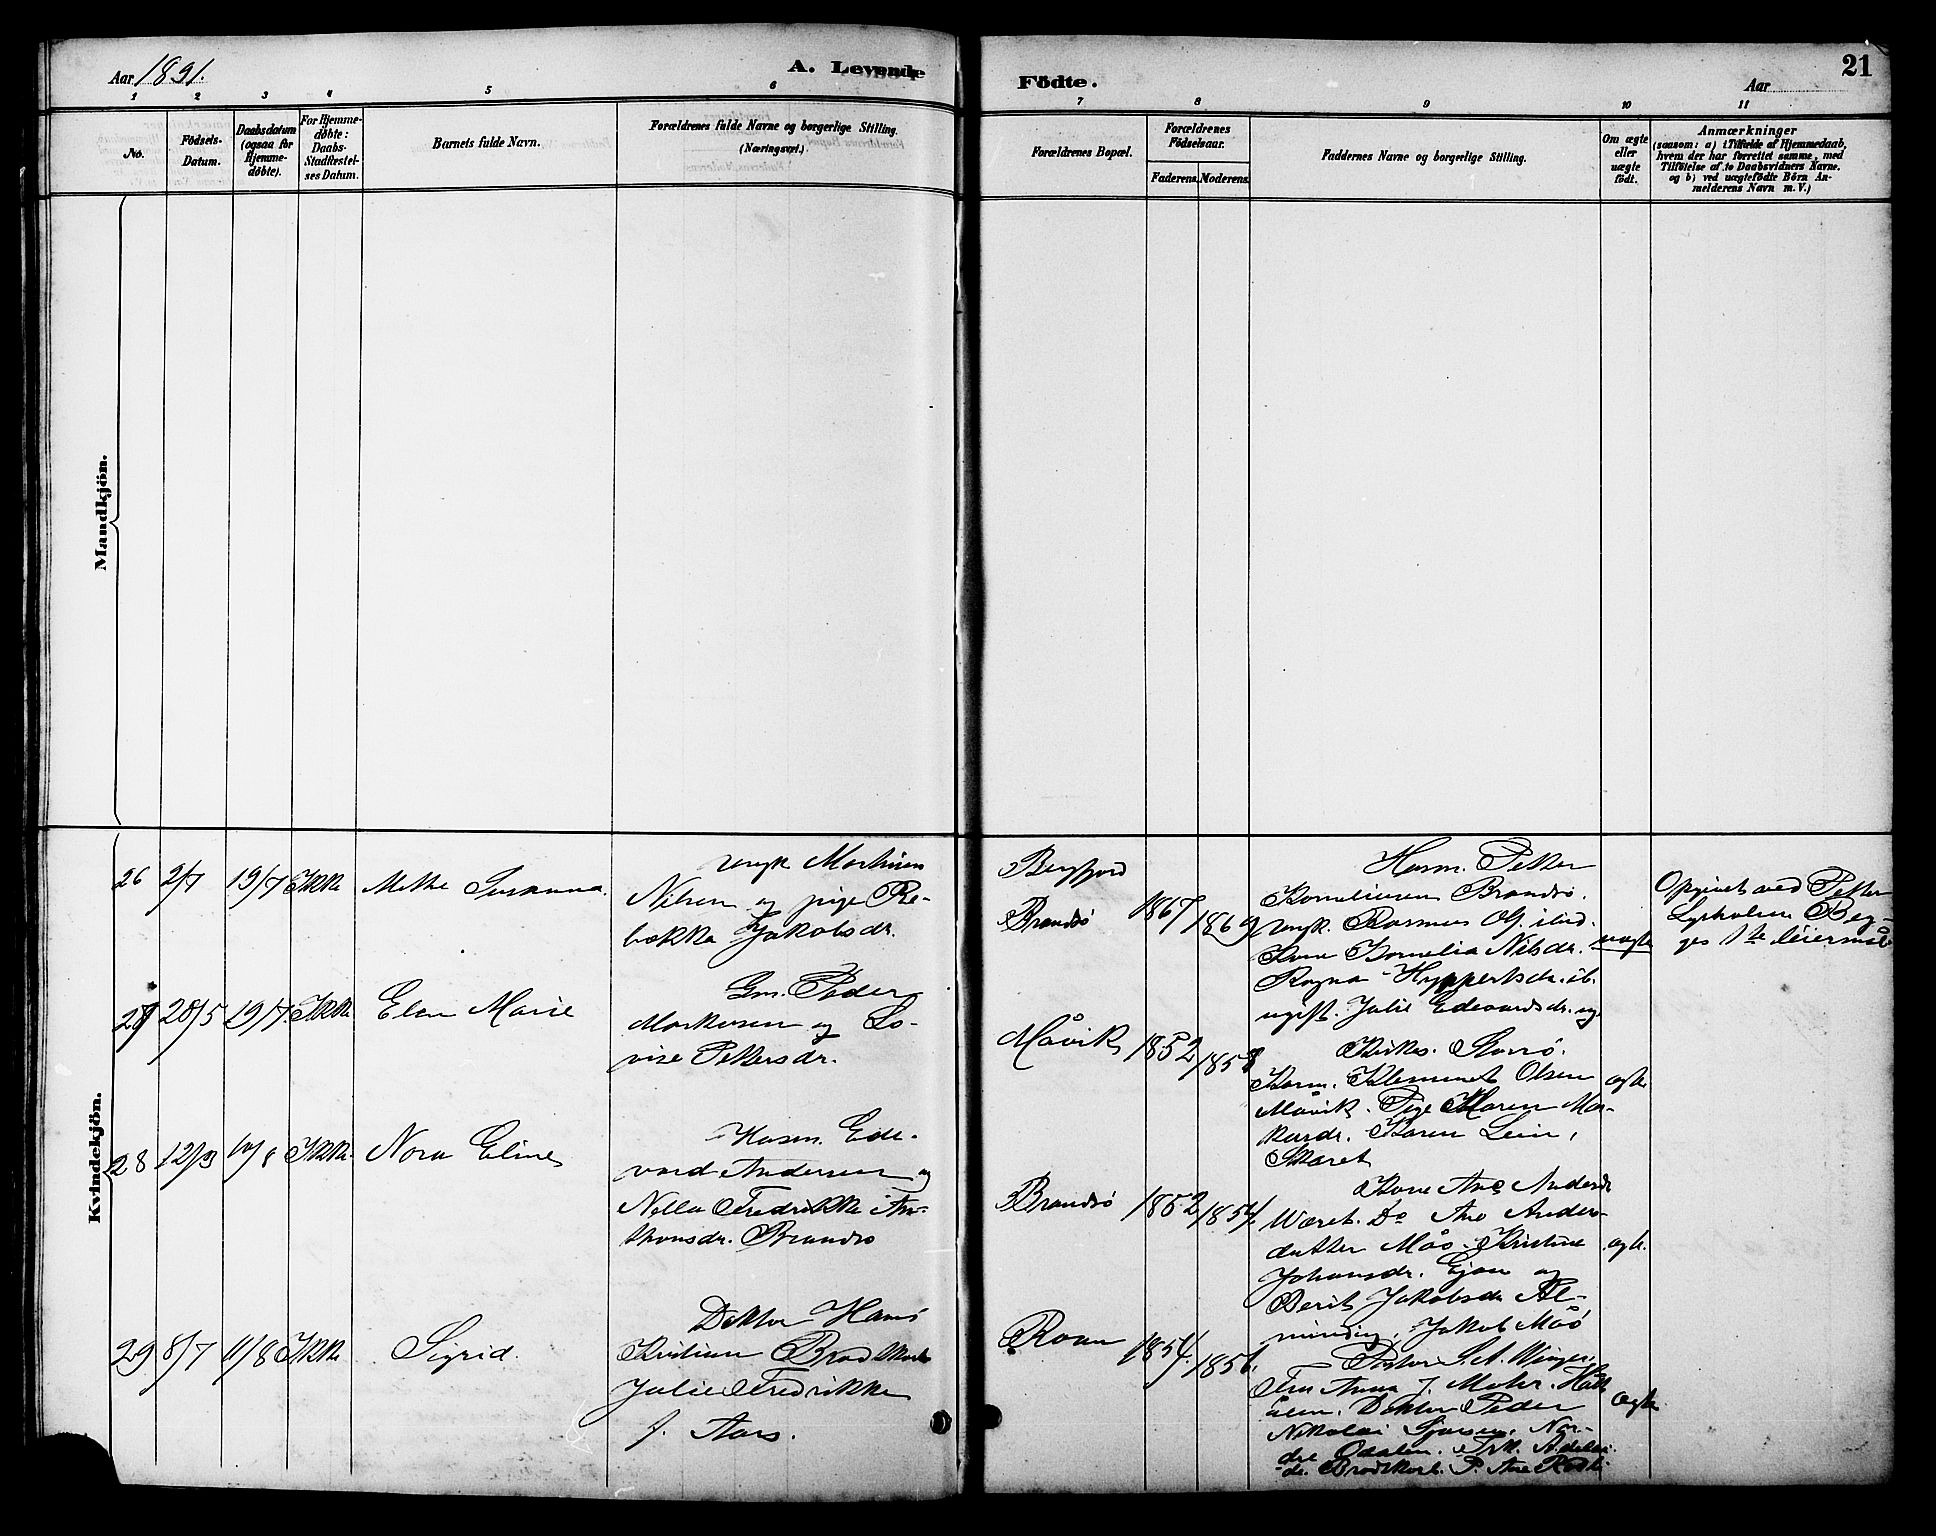 Aar 1891.
A. Levende
Födte.
Aar
21
1 2 3 4 5 6 7 8 9 10 11
No.
Födsels-
Datum.
Daabsdatum
(ogsaa for
Hjemme-
døbte).
For Hjemme-
døbte:
Daabs-
Stadfæstel-
ses Datum.
Barnets fulde Navn.
Forældrenes fulde Navne og borgerlige Stilling.
(Næringsvei.)
Forældrenes Bopæl.
Forældrenes
Födselsaar.
Faderens. Moderens.
Faddernes Navne og borgerlige Stilling.
Om ægte
eller
uægte
födt.
Anmærkninger
(saasom: a) i Tilfælde af Hjemmedaab,
hvem der har forrettet samme, med
Tilföielse af to Daabsvidners Navne,
og b) ved uægtefödte Börn An-
melderens Navn m. V.)
Mandkjön.
Kvindekjön.
26 2/7 19/7 Ikke Mette Susanna
ungk Martinus
Nilsen og pige Re-
bekka Jakobsdr.
Bergfjord
Brandsø
1867 1869
Husm. Petter
Korneliusen Brandsø.
ungk. Rasmus Ol.
Kone Kornelia Nilsdr.
Ragna Hyppertsdr. ib.
ugift. Julie Edevardsdr.
uægte
Opgivet ved Petter
Lysholm Beg-
ges 1te leiermål
27 28/5 19/7 Ikke Elen Marie
Gm. Peder
Markusen og Lo-
vise Pettersdr.
Måvik 1852 1858
Kirkes. Storø.
Karm. Klemmet Olsen
Måvik. Pige Maren Mar-
kusdr. Karen Lein,
Skaret
ægte
28 12/3 Ikke Nora Eline
Husm. Ede-
vard Andersen og
Nella Fredrikke An-
thonsdr. Brandsø
Brandsø 1852 1854
Kone Ane Andersdr
Været. Do Ane Anders-
datter Mås. Kristine
Johansdr. Gjøn og
Berit Jakobsdr Al-
minding. Jakob Mås
ægte.
29 8/7 11/8 Ikke Sigrid.
Doktor Hans
Kristian Brodtkorb
Julie Fredrikke
f. Aars.
Roan 1854. 1856.
Pastor S. A. Winger.
Fru Anna J. Mohr. Hålt-
ålen. Doktor Peder
Nikolai Gjørsen. Nor-
dre Odalen. Frk. Adelai-
de Brodtkorb. P. Ane
ægte